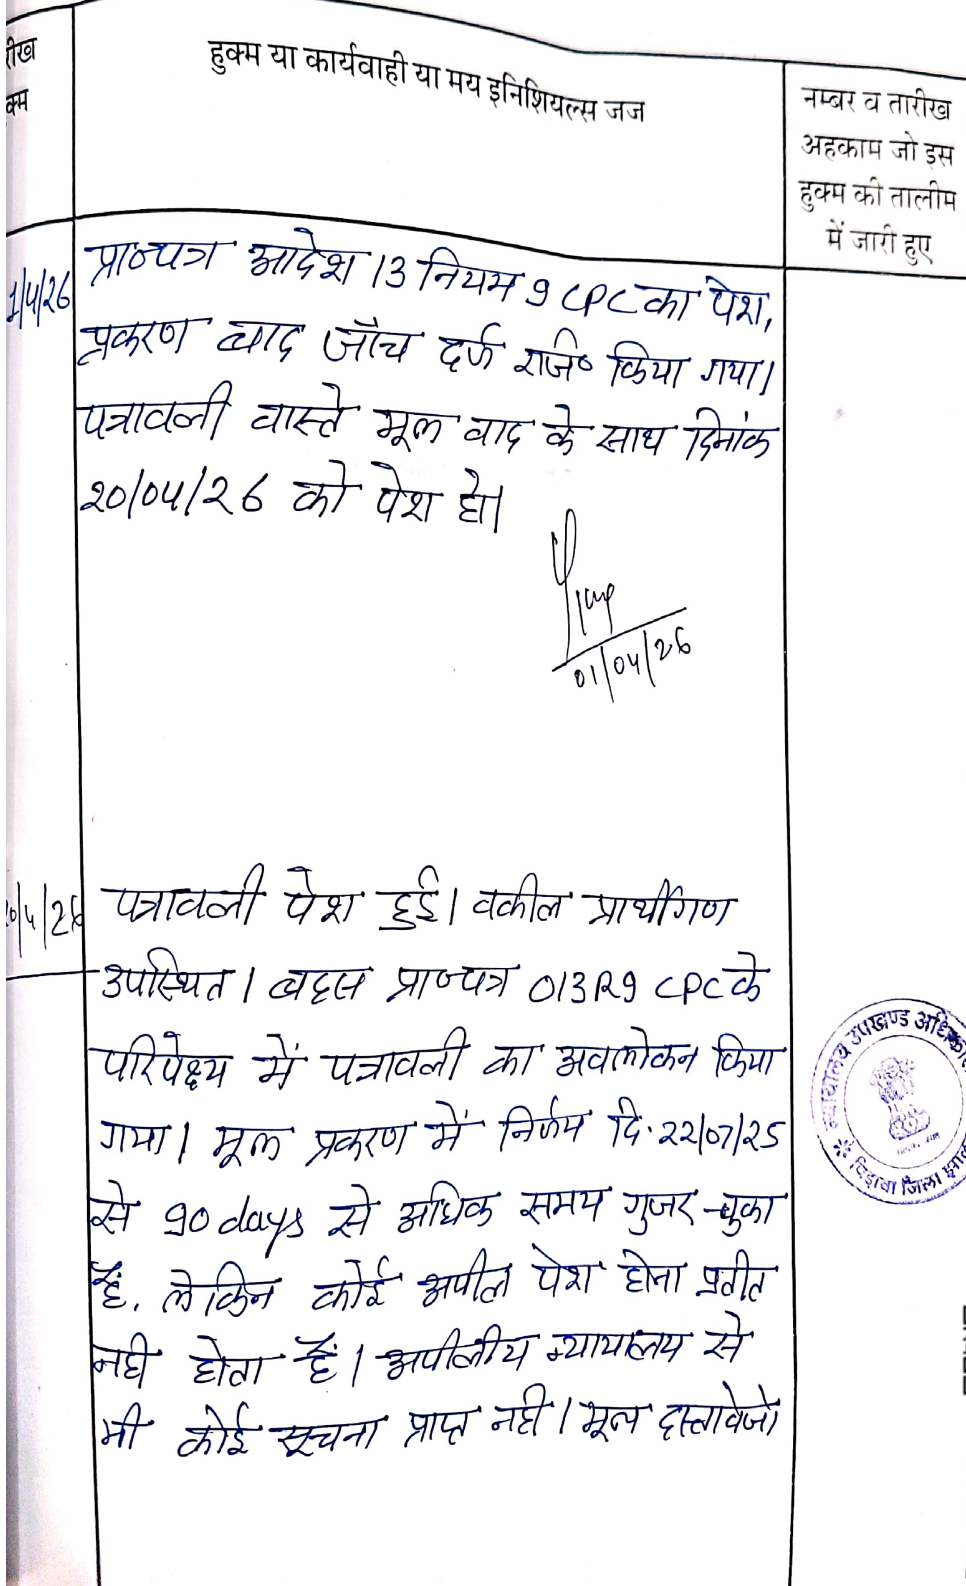 रीख
क्म
हुक्म या कार्यवाही या मय इनिशियल्स जज
नम्बर व तारीख
अहकाम जो इस
हुक्म की तालीम
में जारी हुए
1/4/26
प्रा०पत्र आदेश 13 नियम 9 CPC का पेश,
प्रकरण बाद जाँच दर्ज राजि० किया गया।
पत्रावली वास्ते मूल वाद के साथ दिनांक
20/04/26 को पेश हो।
01/04/26
20/4/26
पत्रावली पेश हुई। वकील प्रार्थीगण
उपस्थित। बहस प्रा०पत्र O13R9 CPC के
परिपेक्ष्य में पत्रावली का अवलोकन किया
गया। मूल प्रकरण में निर्णय दि. 22/07/25
से 90 days से अधिक समय गुजर चुका
हैं, लेकिन कोई अपील पेश होना प्रतीत
नही होता हैं। अपीलीय न्यायालय से
भी कोई सूचना प्राप्त नही। मूल दस्तावेजो
न्यायालय उपखण्ड अधिकारी
पिड़ावा जिला झाला